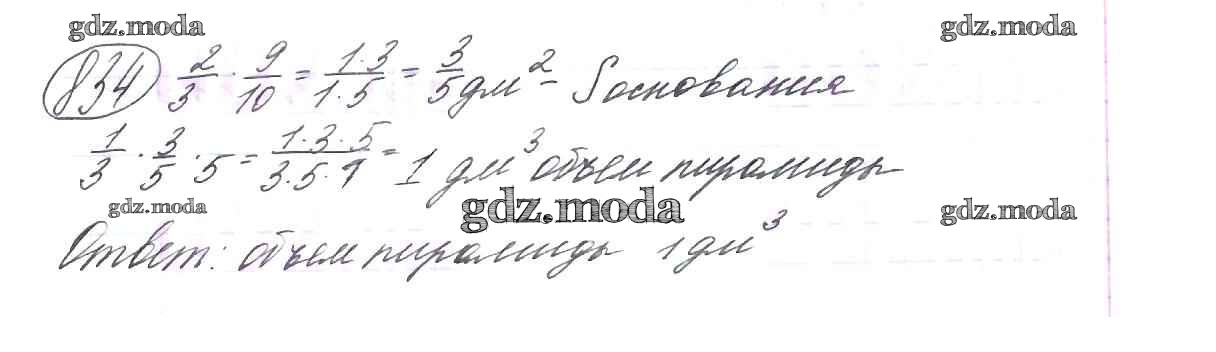 gdz.moda gdz.moda
834 2/3 · 9/10 = 1·3/1·5 = 3/5 дм² - S основания
1/3 · 3/5 · 5 = 1·3·5/3·5·1 = 1 дм³ объем пирамиды
gdz.moda gdz.moda gdz.moda
Ответ: объем пирамиды 1 дм³